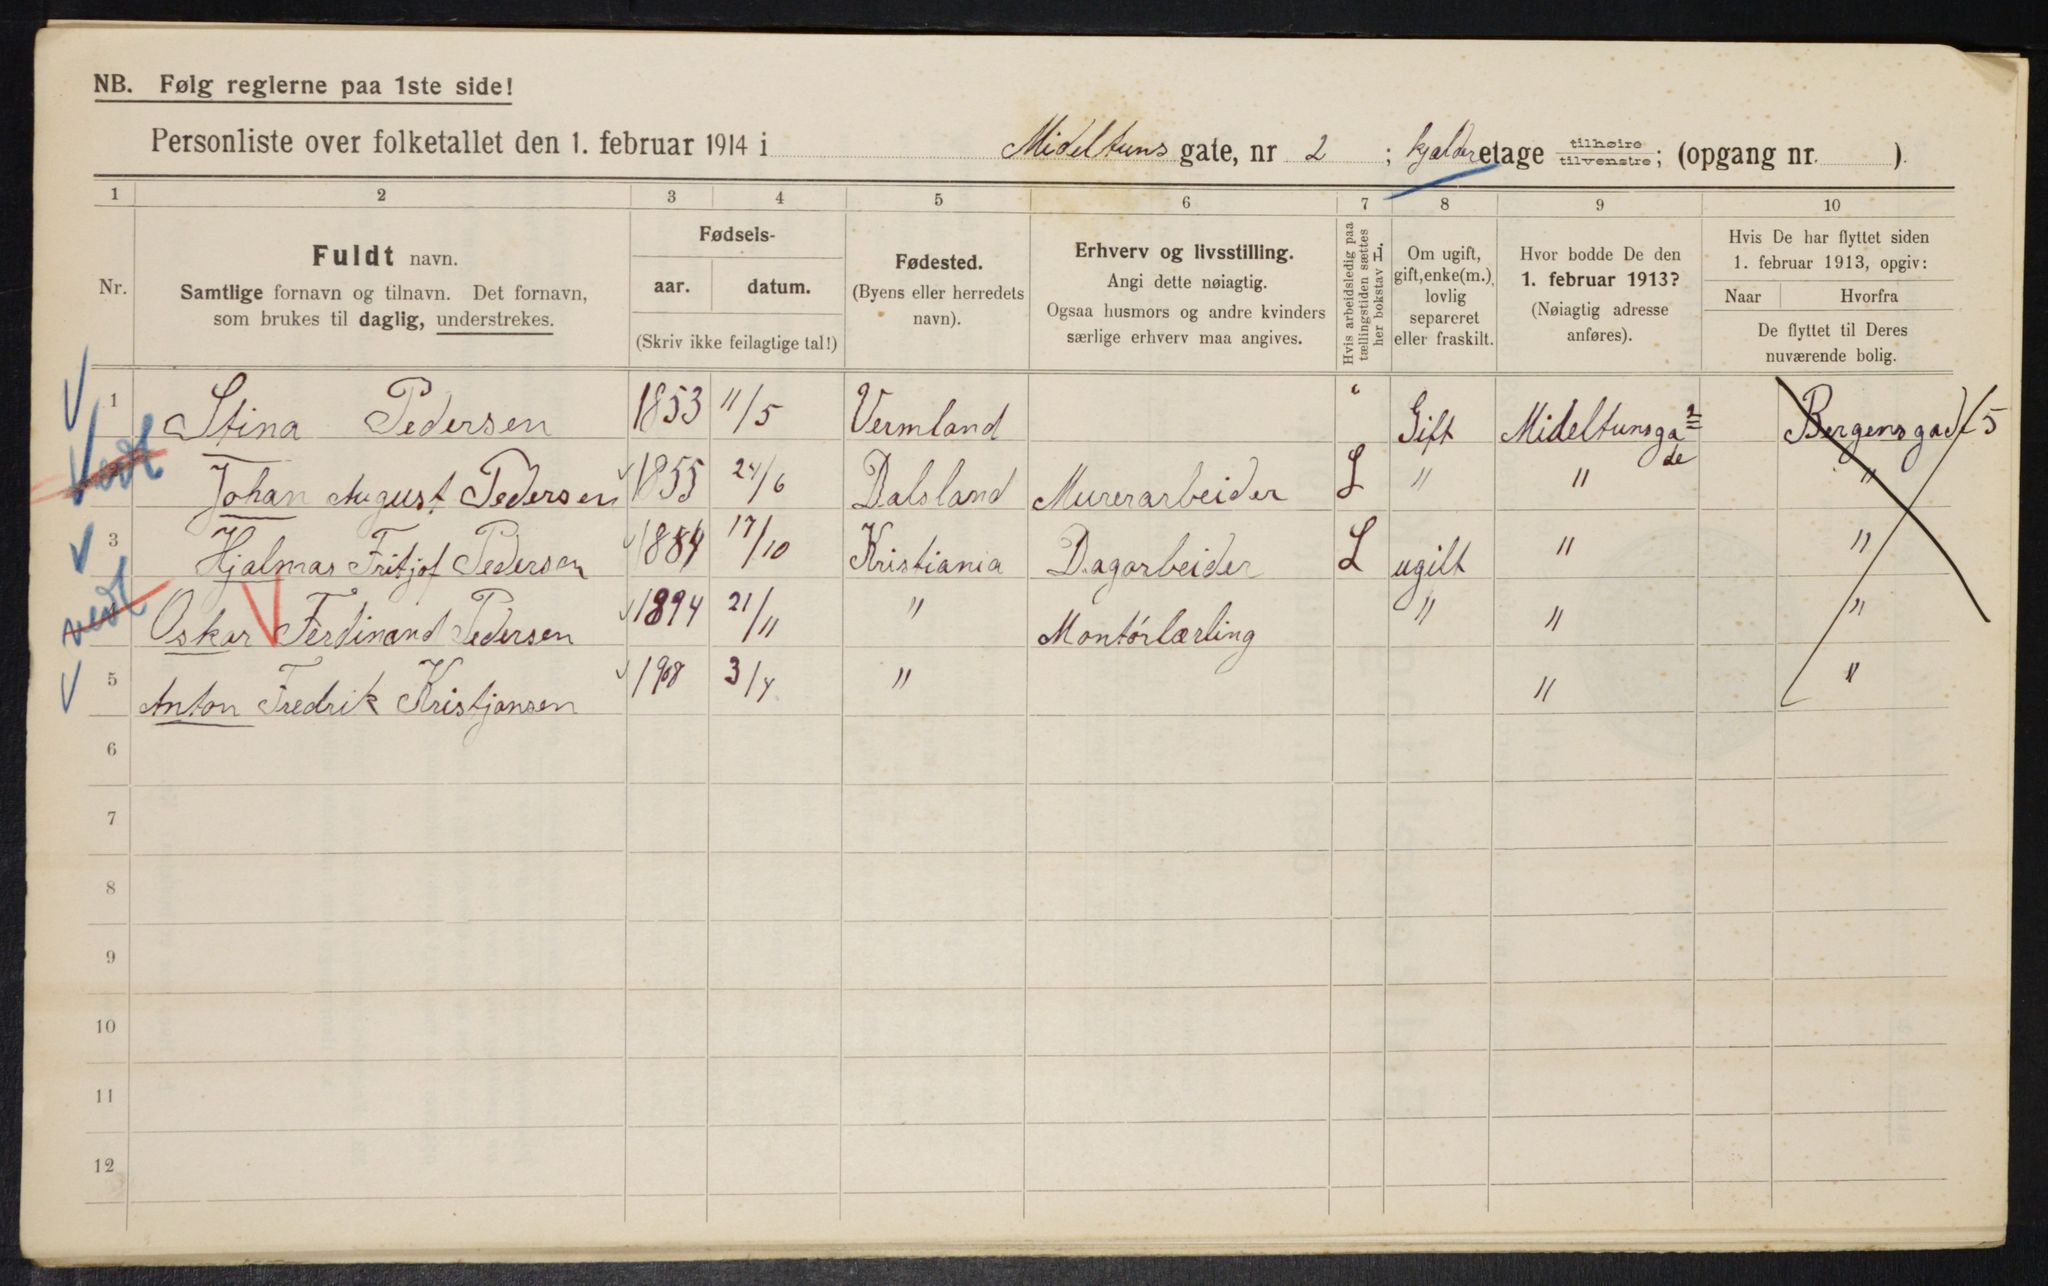 NB. Følg reglerne paa 1ste side!
Personliste over folketallet den 1. februar 1914 i Mideltuns gate, nr 2 ; kjelderetage tilhøire tilvenstre; (opgang nr. ).
1 2 3 4 5 6 7 8 9 10
Nr.
Fuldt navn.
Samtlige fornavn og tilnavn. Det fornavn,
som brukes til daglig, understrekes.
Fødsels-
aar. datum.
(Skriv ikke feilagtige tal!)
Fødested.
(Byens eller herredets
navn).
Erhverv og livsstilling.
Angi dette nøiagtig.
Ogsaa husmors og andre kvinders
særlige erhverv maa angives.
Hvis arbeidsledig paa
tællingstiden sættes
her bokstav L.
Om ugift,
gift, enke(m.),
lovlig
separeret
eller fraskilt.
Hvor bodde De den
1. februar 1913?
(Nøiagtig adresse
anføres).
Hvis De har flyttet siden
1. februar 1913, opgiv:
Naar Hvorfra
De flyttet til Deres
nuværende bolig.
1 Stina Pedersen 1853 11/5 Vermland " Gift Mideltunsgade 2 Bergensgad 5
Johan August Pedersen 1855 24/6 Dalsland Murerarbeider L " " "
3 Hjalmar Fritjof Pedersen 1884 17/10 Kristiania Dagarbeider L ugift " "
Oskar Ferdinand Pedersen 1894 21/11 " Montörlærling " " "
5 Anton Fredrik Kristjansen 1908 3/4 " " "
6
7
8
9
10
11
12